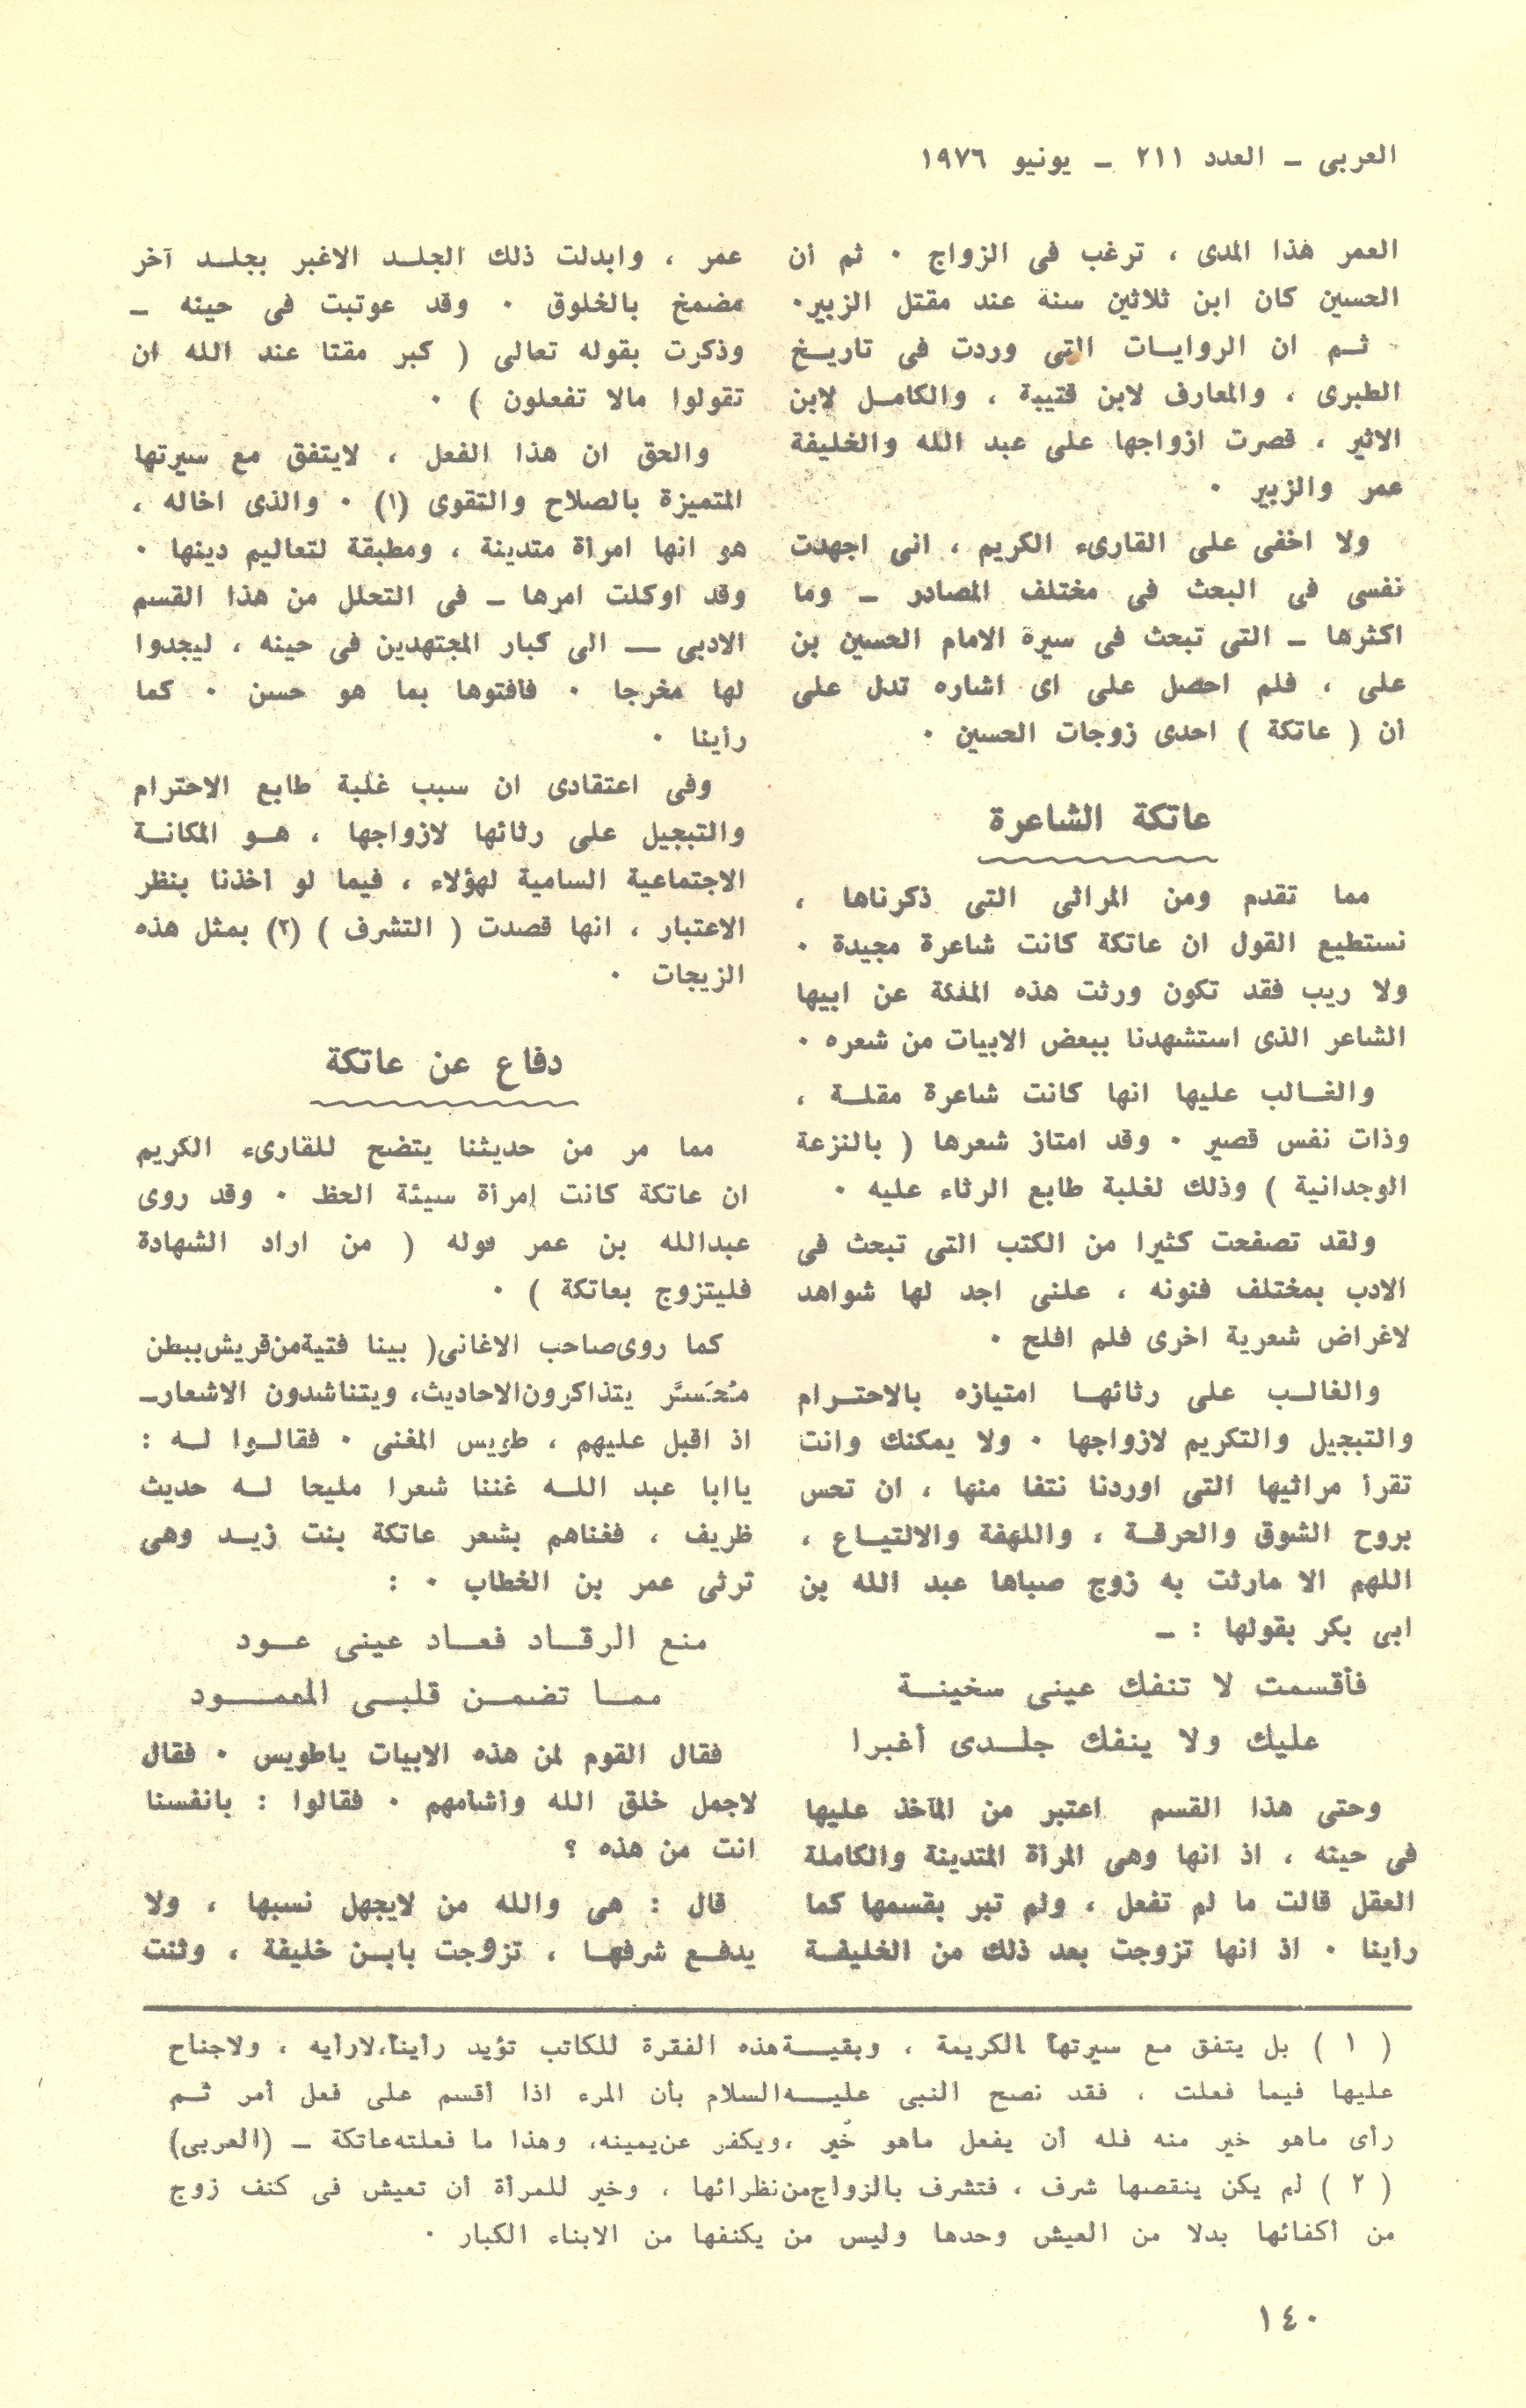 العربى ـ العدد ٢١١ ـ يونيو ١٩٧٦
العمر هذا المدى ، ترغب فى الزواج ٠ ثم أن
الحسين كان ابن ثلاثين سنة عند مقتل الزبير٠
ثـم ان الروايـات التى وردت فى تاريـخ
الطبرى ، والمعارف لابن قتيبة ، والكامـل لابن
الاثير ، قصرت ازواجها على عبد الله والخليفة
عمر والزبير ٠
ولا اخفى على القارىء الكريم ، انى اجهدت
نفسى فى البحث فى مختلف المصادر ـ وما
اكثرها ـ التى تبحث فى سيرة الامام الحسين بن
على ، فلم احصل على اى اشاره تدل على
أن ( عاتكة ) احدى زوجات الحسين ٠
عاتكة الشاعرة
مما تقدم ومن المراثى التى ذكرناها ،
نستطيع القول ان عاتكة كانت شاعرة مجيدة ٠
ولا ريب فقد تكون ورثت هذه الملكة عن ابيها
الشاعر الذى استشهدنا ببعض الابيات من شعره ٠
والغـالب عليها انها كانت شاعرة مقلـة ،
وذات نفس قصير ٠ وقد امتاز شعرها ( بالنزعة
الوجدانية ) وذلك لغلبة طابع الرثاء عليه ٠
ولقد تصفحت كثيرا من الكتب التى تبحث فى
الادب بمختلف فنونه ، علنى اجد لها شواهد
لاغراض شعرية اخرى فلم افلح ٠
والغالـب على رثائهـا امتيازه بالاحتـرام
والتبجيل والتكريم لازواجها ٠ ولا يمكنك وانت
تقرأ مراثيها التى اوردنا نتفا منها ، ان تحس
بروح الشوق والحرقـة ، واللهفة والالتيـاع ،
اللهم الا مارثت به زوج صباها عبد الله بن
ابى بكر بقولها : ـ
فأقسمت لا تنفك عينى سخينـة
عليك ولا ينفك جلـدى أغبرا
وحتى هذا القسم اعتبر من المآخذ عليها
فى حينه ، اذ انها وهى المرأة المتدينة والكاملة
العقل قالت ما لم تفعل ، ولم تبر بقسمها كما
رأينا ٠ اذ انها تزوجت بعد ذلك من الخليفـة
عمر ، وابدلت ذلك الجلـد الاغبر بجلـد آخر
مضمخ بالخلوق ٠ وقد عوتبت فى حينه ـ
وذكرت بقوله تعالى ( كبر مقتا عند الله ان
تقولوا مالا تفعلون ) ٠
والحق ان هذا الفعل ، لايتفق مع سيرتها
المتميزة بالصلاح والتقوى (١) ٠ والذى اخاله ،
هو انها امرأة متدينة ، ومطبقة لتعاليم دينها ٠
وقد اوكلت امرها ـ فى التحلل من هذا القسم
الادبى ــ الى كبار المجتهدين فى حينه ، ليجدوا
لها مخرجا ٠ فافتوها بما هو حسن ٠ كما
رأينا ٠
وفى اعتقادى ان سبب غلبة طابع الاحترام
والتبجيل على رثائها لازواجها ، هـو المكانـة
الاجتماعية السامية لهؤلاء ، فيما لو أخذنا بنظر
الاعتبار ، انها قصدت ( التشرف ) (٢) بمثل هذه
الزيجات ٠
دفاع عن عاتكة
مما مر من حديثنا يتضح للقارىء الكريم
ان عاتكة كانت إمرأة سيئة الحظ ٠ وقد روى
عبدالله بن عمر قوله ( من اراد الشهادة
فليتزوج بعاتكة ) ٠
كما روى صاحب الاغانى( بينا فتية من قريش ببطن
مُحَسَّر يتذاكرون الاحاديث، ويتناشدون الاشعارـ
اذ اقبل عليهم ، طويس المغنى ٠ فقالـوا لـه :
ياابا عبد اللـه غننا شعرا مليحا لـه حديث
ظريف ، فغناهم بشعر عاتكة بنت زيـد وهى
ترثى عمر بن الخطاب ٠ :
منع الرقـاد فعـاد عينى عـود
ممـا تضمـن قلبـى المعمـود
فقال القوم لمن هذه الابيات ياطويس ٠ فقال
لاجمل خلق الله وأشأمهم ٠ فقالوا : بانفسنا
انت من هذه ؟
قال : هى والله من لايجهل نسبها ، ولا
يدفـع شرفهـا ، تزوجت بابـن خليفة ، وثنت
( ١ ) بل يتفق مع سيرتها الكريمة ، وبقيـة هذه الفقرة للكاتب تؤيد رأينا،لارأيه ، ولاجناح
عليها فيما فعلت ، فقد نصح النبى عليـه السلام بأن المرء اذا أقسم على فعل أمر ثـم
رأى ماهو خير منه فله أن يفعل ماهو خُير ،ويكفر عن يمينه، وهذا ما فعلته عاتكة ـ (العربى)
( ٢ ) لم يكن ينقصها شرف ، فتشرف بالزواج من نظرائها ، وخير للمرأة أن تعيش فى كنف زوج
من أكفائها بدلا من العيش وحدها وليس من يكنفها من الابناء الكبار ٠
١٤٠